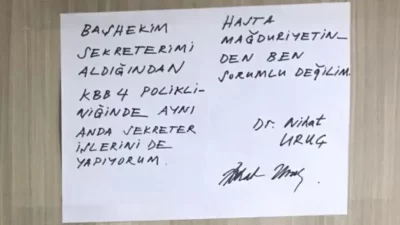 BAŞHEKİM
SEKRETERİMİ
ALDIĞINDAN
KBB 4 POLİKLİ-
NİĞİNDE AYNI
ANDA SEKRETER
İŞLERİNİ DE
YAPIYORUM.
HASTA
MAĞDURİYETİN-
DEN BEN
SORUMLU DEĞİLİM.
Dr. Nihat
URUÇ